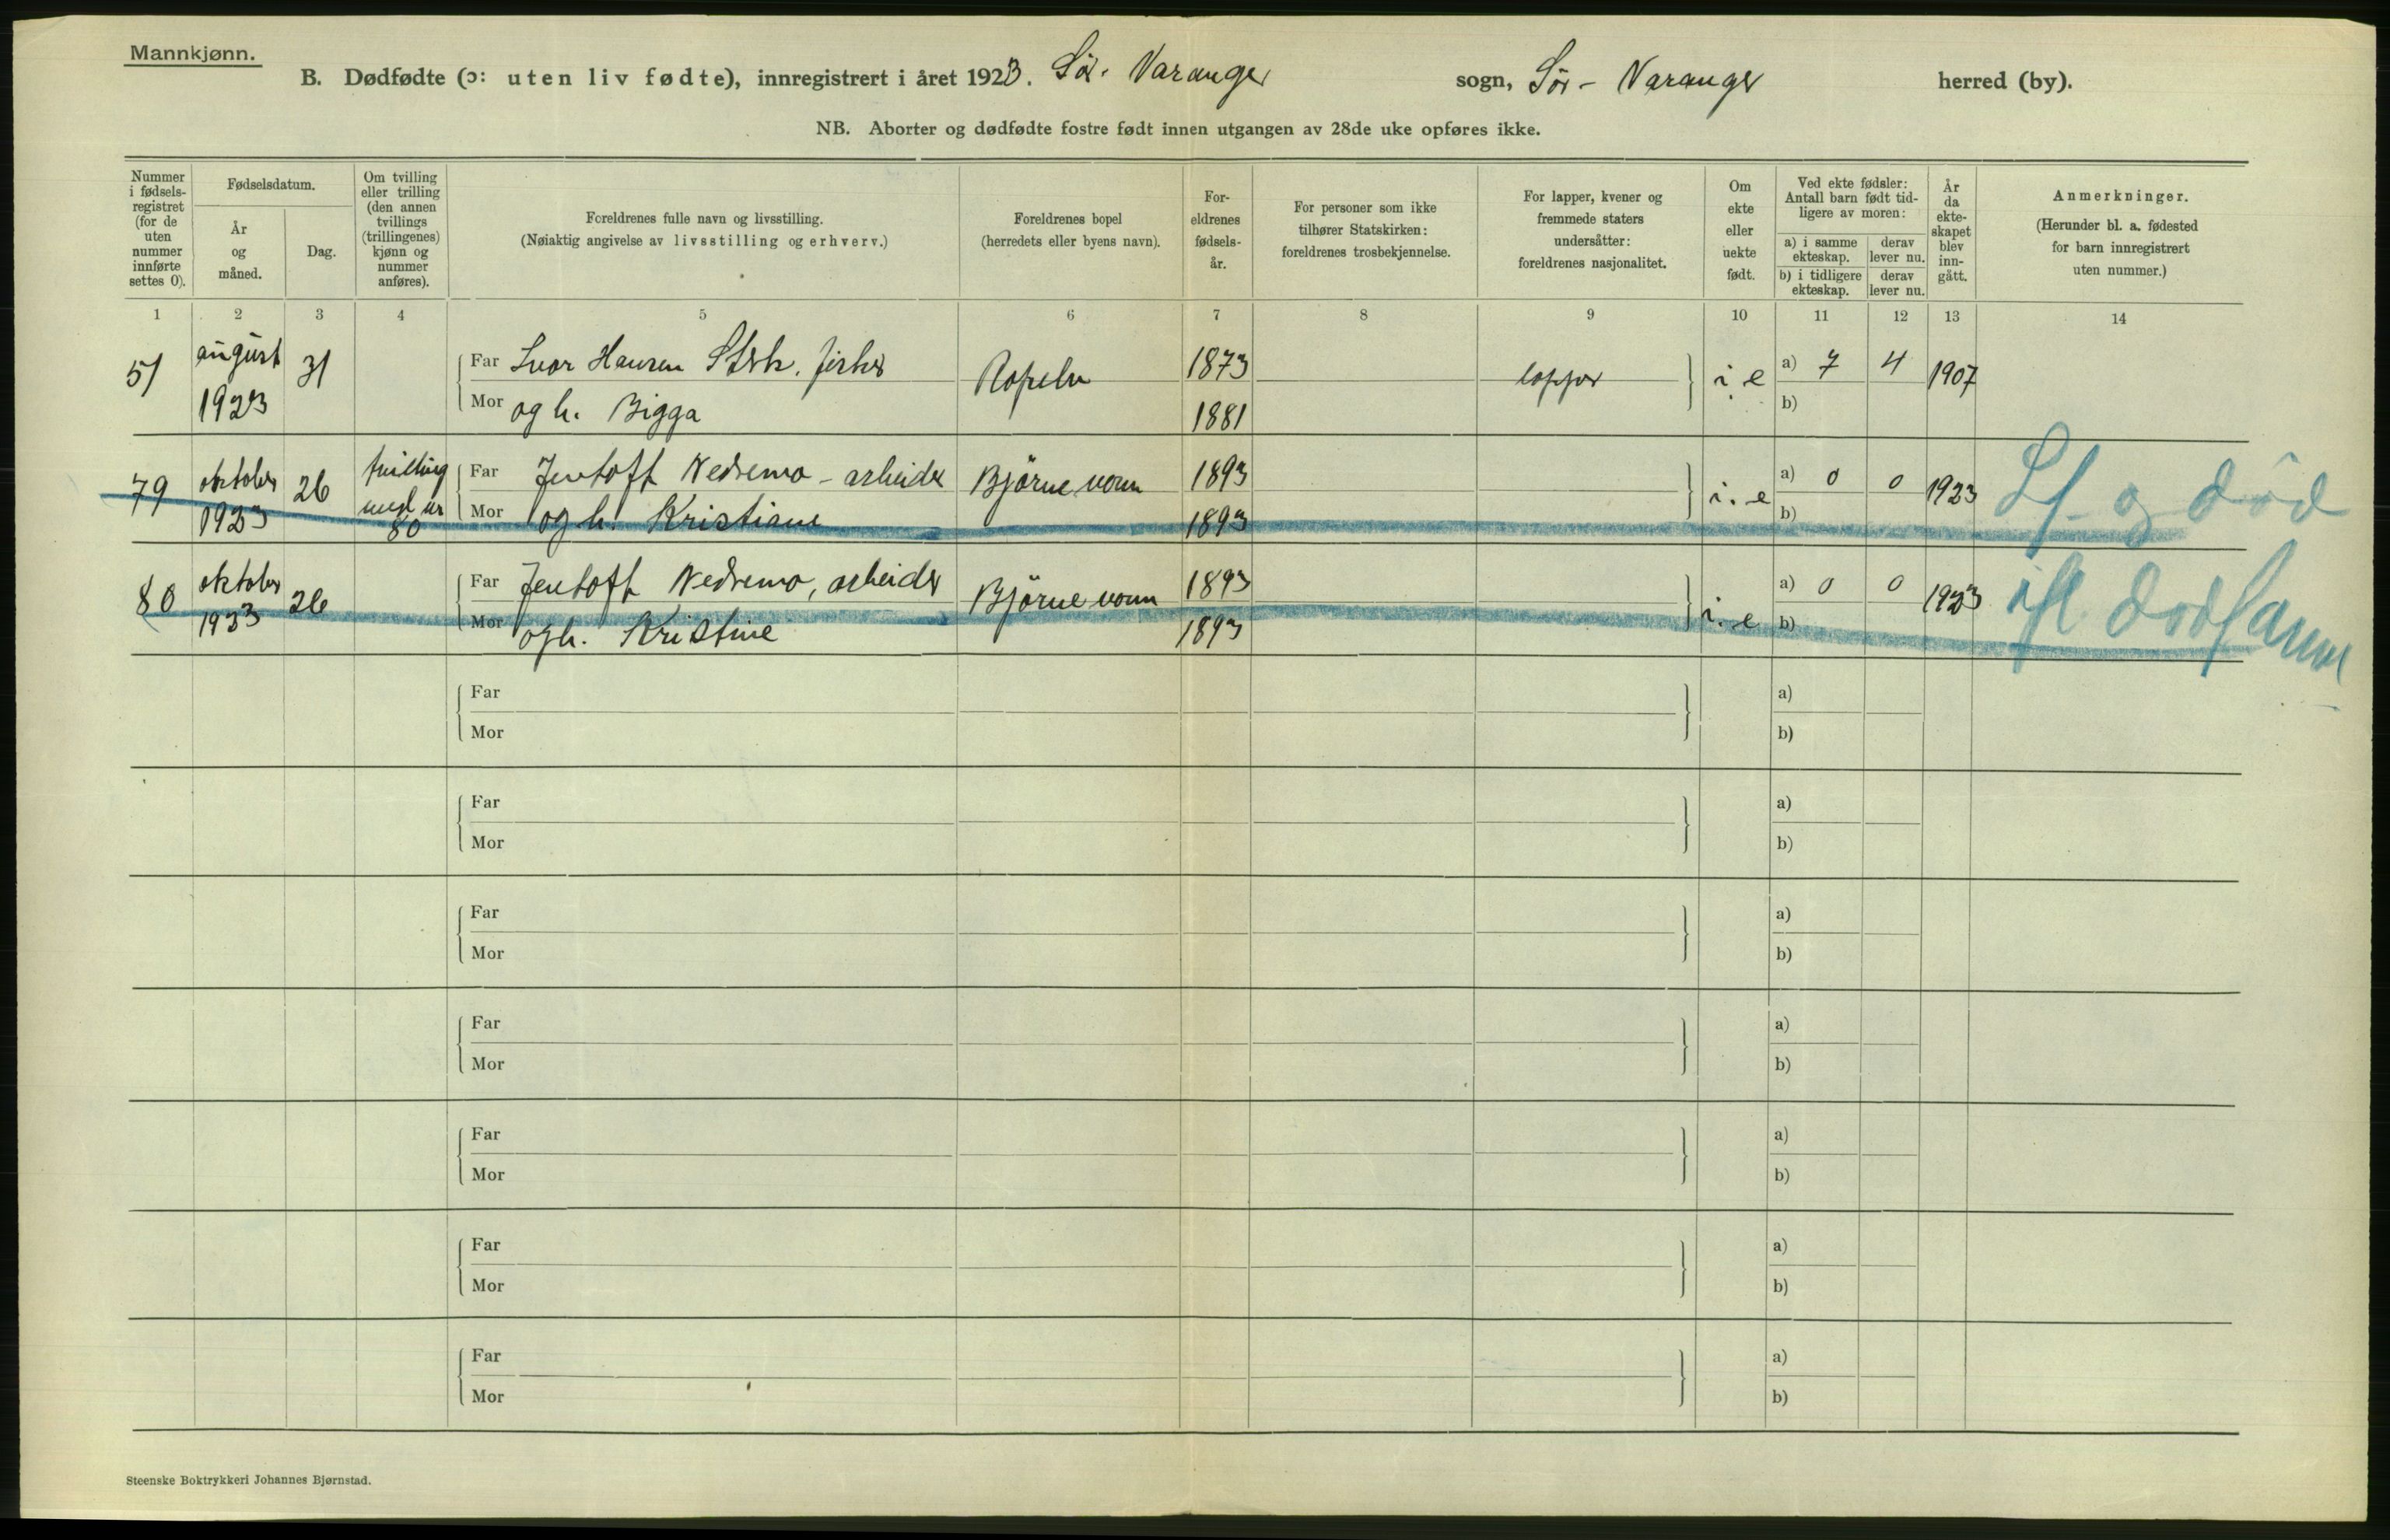 Mannkjønn.
B. Dødfødte (ɔ: uten liv fødte), innregistrert i året 1923. Sör-Varanger sogn, Sör-Varanger herred (by).
NB. Aborter og dødfødte fostre født innen utgangen av 28de uke opføres ikke.
Nummer i fødsels-registret (for de uten nummer innførte settes 0).
Fødselsdatum.
År og måned.
Dag.
Om tvilling eller trilling (den annen tvillings (trillingenes) kjønn og nummer anføres).
Foreldrenes fulle navn og livsstilling.
(Nøiaktig angivelse av livsstilling og erhverv.)
Foreldrenes bopel
(herredets eller byens navn).
For-eldrenes fødsels-år.
For personer som ikke tilhører Statskirken: foreldrenes trosbekjennelse.
For lapper, kvener og fremmede staters undersåtter: foreldrenes nasjonalitet.
Om ekte eller uekte født.
Ved ekte fødsler: Antall barn født tid-ligere av moren:
a) i samme ekteskap.
derav lever nu.
b) i tidligere ekteskap.
derav lever nu.
År da ekte-skapet blev inn-gått.
Anmerkninger.
(Herunder bl. a. fødested for barn innregistrert uten nummer.)
1 2 3 4 5 6 7 8 9 10 11 12 13 14
51 august 31 Far Ivar Hansen fisker 1873 lapper i. e a) 7 4 1907
1923 Mor og h. Bigga 1881 b)
79 oktober 26 tvilling Far Jentoft Nedremo - arbeider Björnevann 1893 i. e a) 0 0 1923 og död
1923 med nr 80 Mor og h. Kristiane 1893 b)
80 oktober 26 Far Jentoft Nedremo, arbeider Björnevann 1893 i. e a) 0 0 1923
1923 Mor og h. Kristine 1893 b)
Far a)
Mor b)
Far a)
Mor b)
Far a)
Mor b)
Far a)
Mor b)
Far a)
Mor b)
Far a)
Mor b)
Far a)
Mor b)
Steenske Boktrykkeri Johannes Bjørnstad.